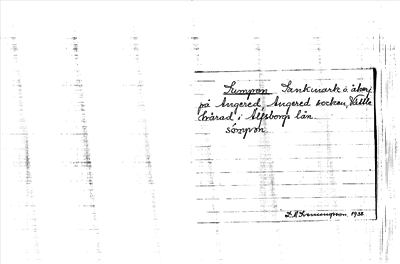 Sumpon Sankmark o åker
på Angered, Angered socken, Vättle
härad, i Älfsborgs län.
sompon.
1938